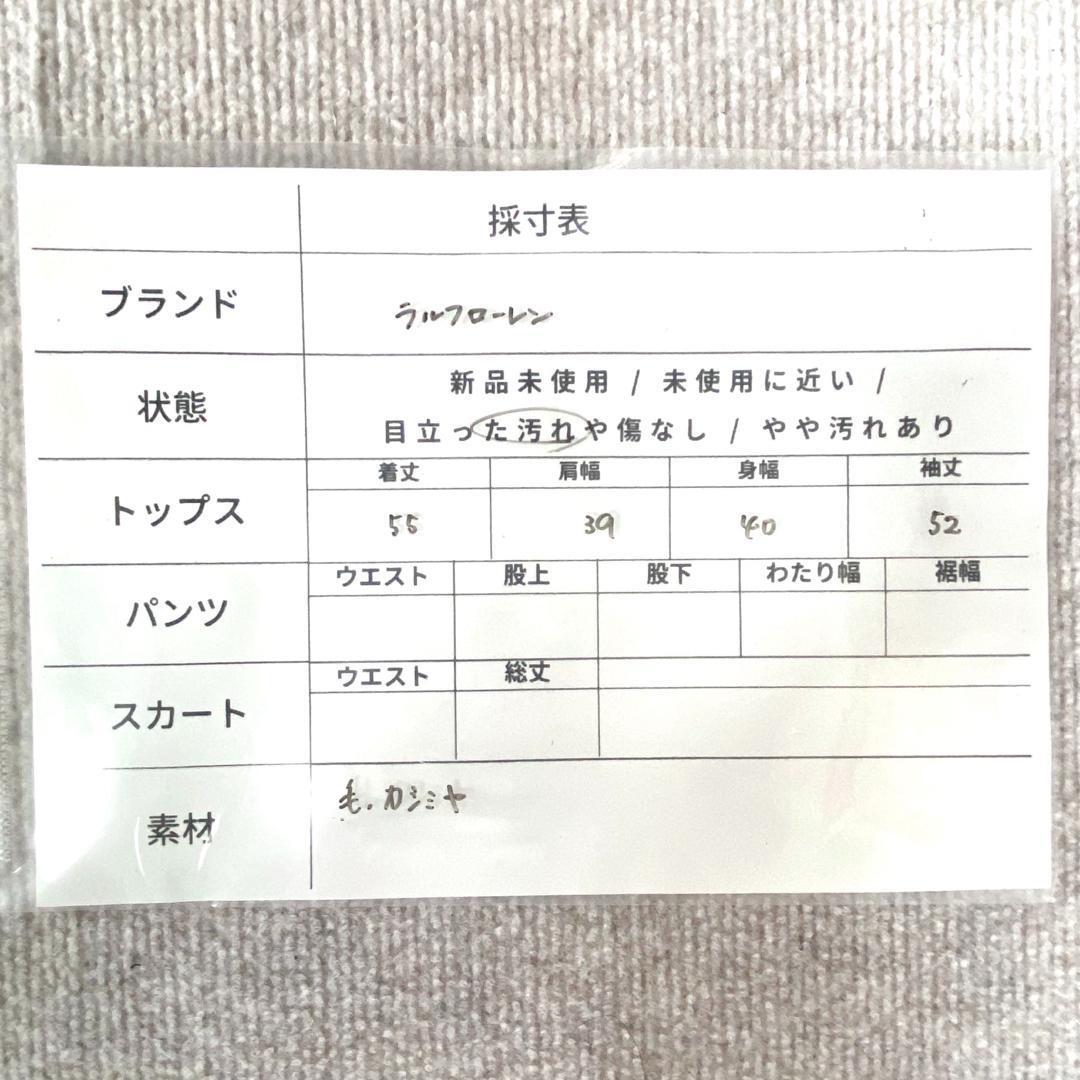 採寸表
ブランド
ラルフローレン
状態
新品未使用 / 未使用に近い /
目立った汚れや傷なし / やや汚れあり
トップス
着丈 肩幅 身幅 袖丈
55 39 40 52
パンツ
ウエスト 股上 股下 わたり幅 裾幅
スカート
ウエスト 総丈
素材
毛、カシミヤ